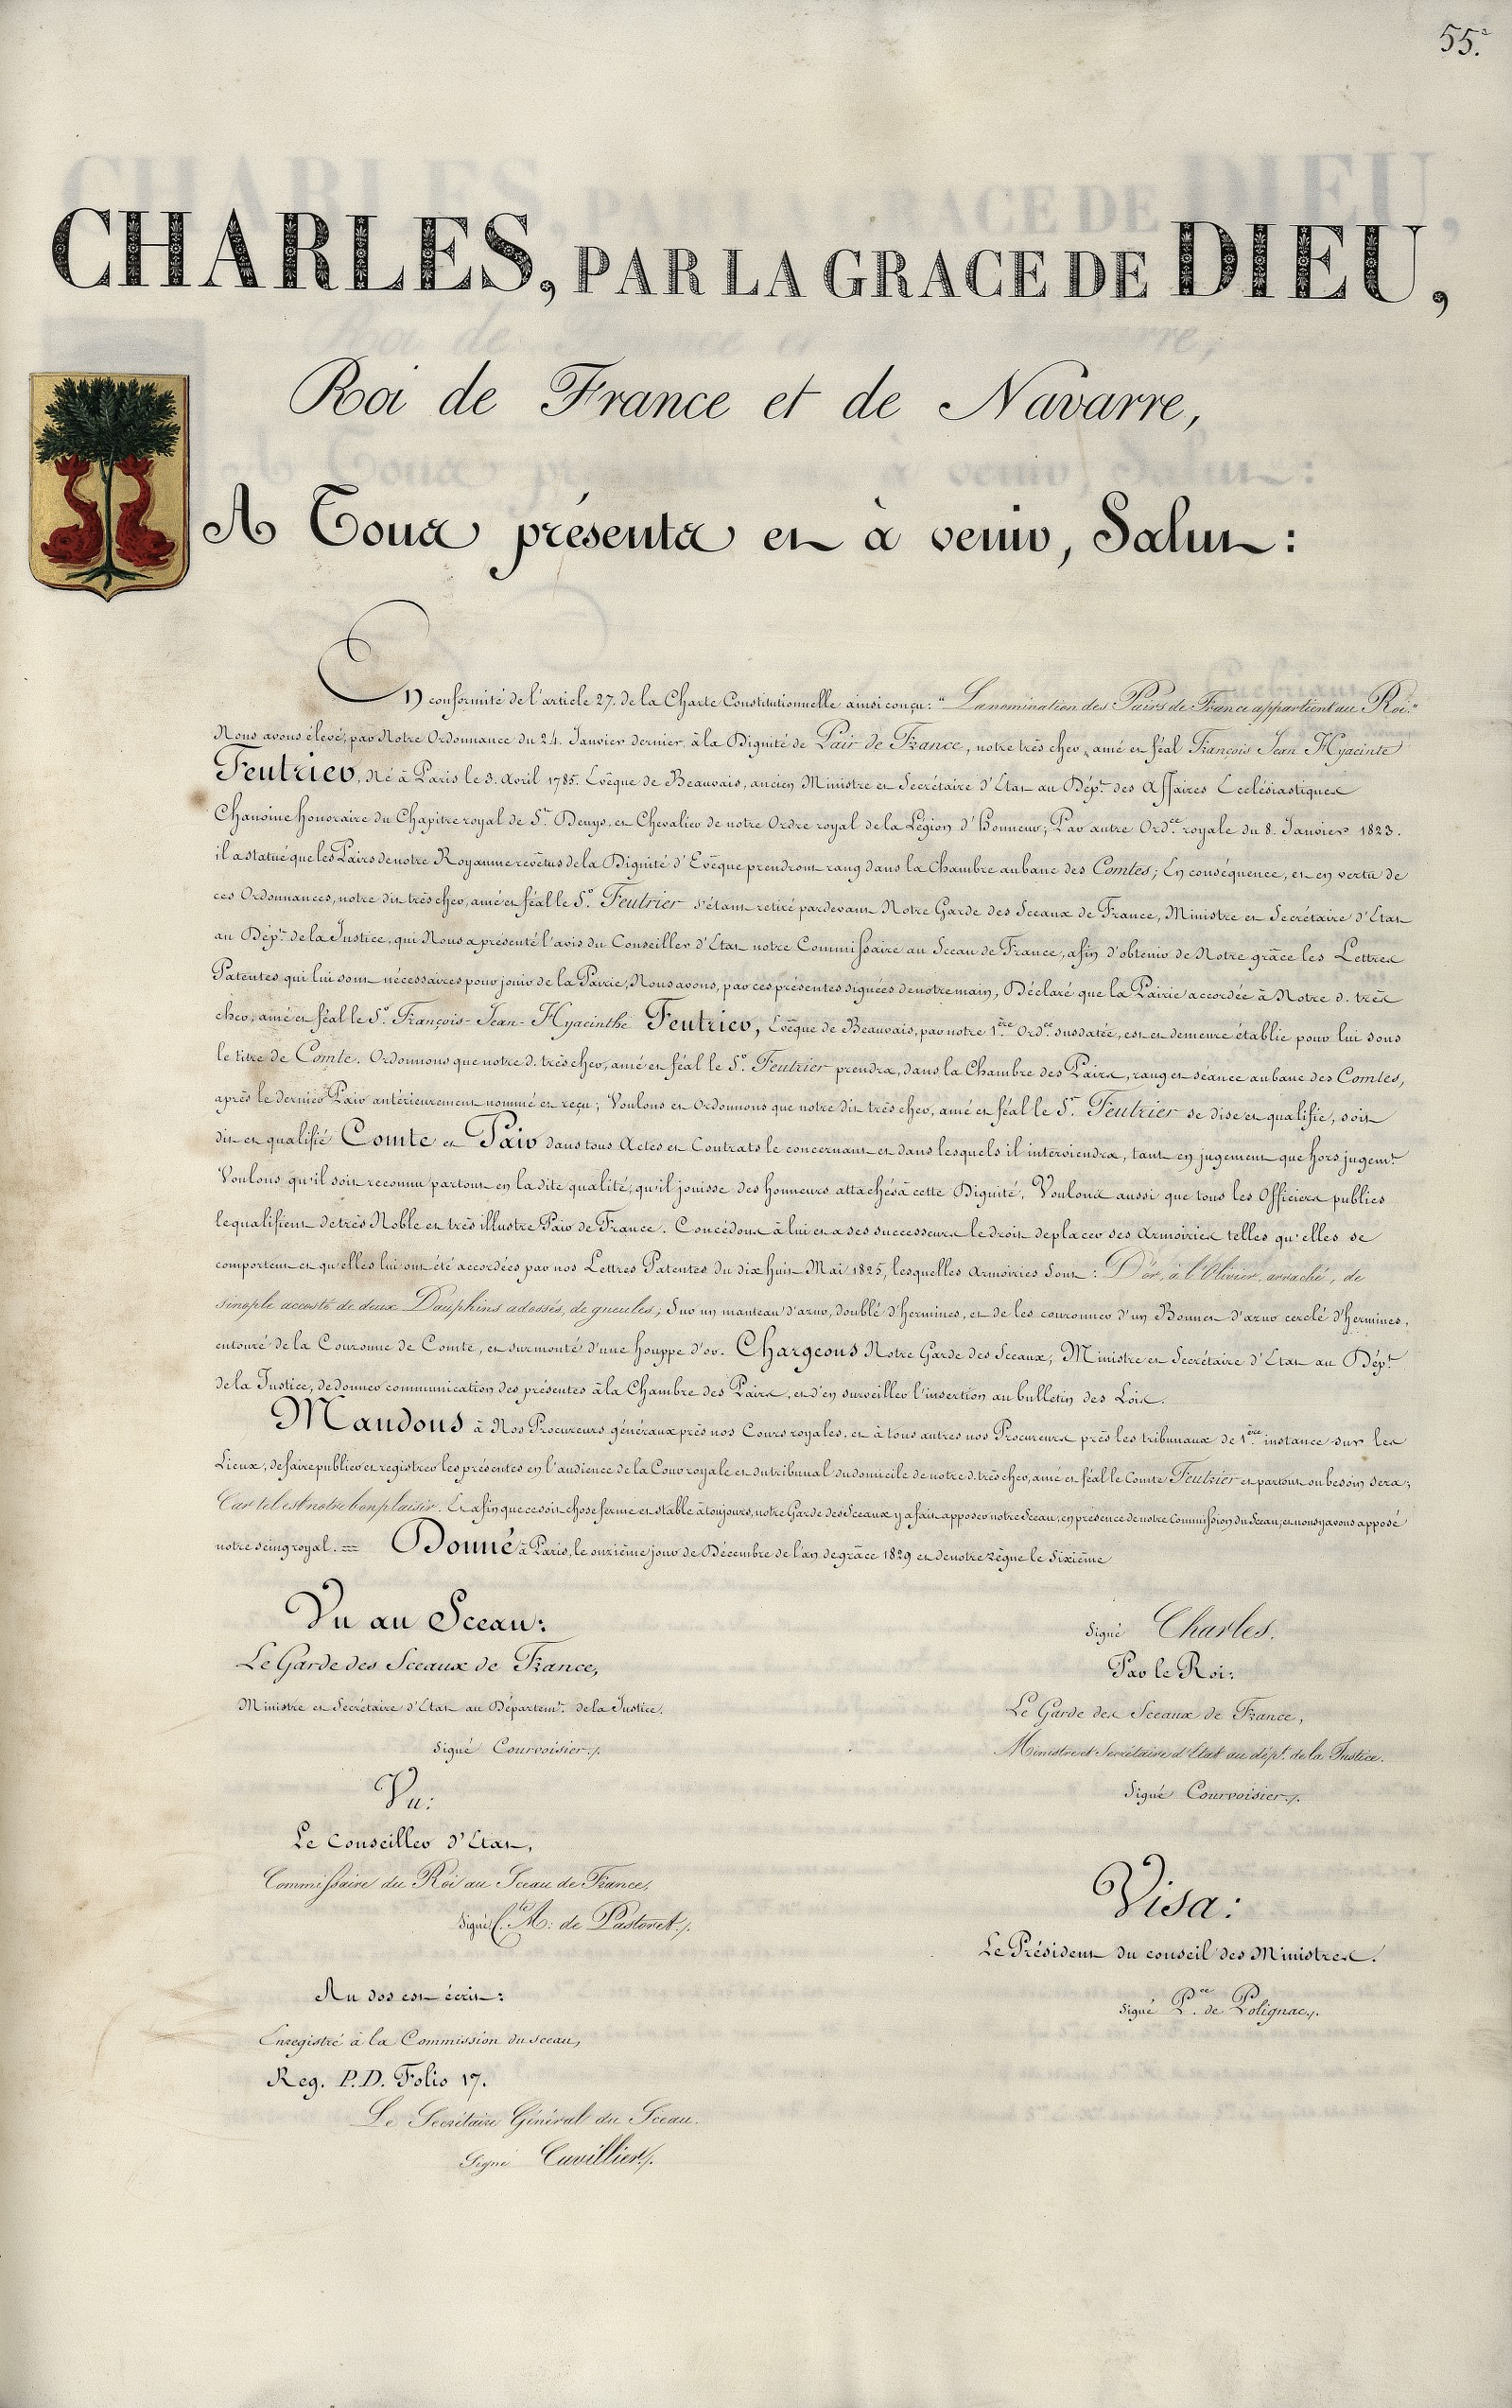 55.
CHARLES, PAR LA GRACE DE DIEU,
Roi de France et de Navarre,
A Tous présents et à venir, Salut:
En conformité de l'article 27. de la Charte Constitutionnelle ainsi conçu: "La nomination des Pairs de France appartient au Roi."
Nous avons élevé, par Notre Ordonnance du 24. Janvier dernier, à la Dignité de Pair de France, notre très cher, amé et féal François Jean Hyacinte
Feutrier, Né à Paris le 3. Avril 1785. Evêque de Beauvais, ancien Ministre et Secrétaire d'Etat au Dépt. des Affaires Ecclésiastiques
Chanoine honoraire du Chapitre royal de St. Denys, et Chevalier de notre Ordre royal de la Légion d'Honneur; Par autre Ordce. royale du 8. Janvier 1823.
il a statué que les Pairs de notre Royaume revêtus de la Dignité d'Evêque prendront rang dans la Chambre au banc des Comtes; En conséquence, et en vertu de
ces Ordonnances, notre dit très cher, amé et féal le Sr. Feutrier s'étant retiré pardevant Notre Garde des Sceaux de France, Ministre et Secrétaire d'Etat
au Dépt. de la Justice, qui Nous a présenté l'avis du Conseiller d'Etat notre Commissaire au Sceau de France, afin d'obtenir de Notre grâce les Lettres
Patentes qui lui sont nécessaires pour jouir de la Pairie, Nous avons, par ces présentes signées de notre main, Déclaré que la Pairie accordée à Notre d. très
cher, amé et féal le Sr. François-Jean-Hyacinthe Feutrier, Evêque de Beauvais, par notre 1ère Ordce. susdatée, est et demeure établie pour lui sous
le titre de Comte. Ordonnons que notre d. très cher, amé et féal le Sr. Feutrier prendra, dans la Chambre des Pairs, rang et séance au banc des Comtes,
après le dernier Pair antérieurement nommé et reçu; Voulons et Ordonnons que notre dit très cher, amé et féal le Sr. Feutrier se dise et qualifie, soit
dit et qualifié Comte et Pair dans tous Actes et Contrats le concernant et dans lesquels il interviendra, tant en jugement que hors jugemt.
Voulons qu'il soit reconnu partout en la dite qualité, qu'il jouisse des honneurs attachés à cette Dignité, Voulons aussi que tous les Officiers publics
le qualifient de très Noble et très illustre Pair de France. Concédons à lui et a ses successeurs le droit de placer ses Armoiries telles qu'elles se
comportent et qu'elles lui ont été accordées par nos Lettres Patentes du dix huit Mai 1825, lesquelles Armoiries sont: D'or, à l'Olivier, arraché, de
sinople accosté de deux Dauphins adossés, de gueules; Sur un manteau d'azur, doublé d'hermines, et de les couronner d'un Bonnet d'azur cerclé d'hermines,
entouré de la Couronne de Comte, et surmonté d'une houppe d'or. Chargeons Notre Garde des Sceaux, Ministre et Secrétaire d'Etat au Dépt.
de la Justice, de donner communication des présentes à la Chambre des Pairs, et d'en surveiller l'insertion au bulletin des Lois.
Mandons à Nos Procureurs généraux près nos Cours royales, et à tous autres nos Procureurs près les tribunaux de 1ère. instance sur les
Lieux, de faire publier et registrer les présentes en l'audience de la Cour royale et du tribunal du domicile de notre d. très cher, amé et féal le Comte Feutrier et partout où besoin sera;
Car tel est notre bon plaisir. Et afin que ce soit chose ferme et stable à toujours, notre Garde des Sceaux y a fait apposer notre Sceau, en présence de notre Commission du Sceau, et nous y avons apposé
notre seing royal. == Donné à Paris, le onzième jour de Décembre de l'an de grâce 1829 et de notre règne le Sixième
Vu au Sceau:
Le Garde des Sceaux de France,
Ministre et Secrétaire d'Etat au Départemt. de la Justice.
Signé Courvoisier./.
Vu:
Le Conseiller d'Etat,
Commissaire du Roi au Sceau de France,
Signé Cte. A: de Pastoret./.
Au dos est écrit:
Enregistré à la Commission du sceau,
Reg. P.D. Folio 17.
Le Secrétaire Général du Sceau.
Signé Cuvillier./.
Signé Charles.
Par le Roi:
Le Garde des Sceaux de France,
Ministre et Secrétaire d'Etat au dépt. de la Justice.
Signé Courvoisier./.
Visa:
Le Président du conseil des Ministres.
Signé Pce. de Polignac./.